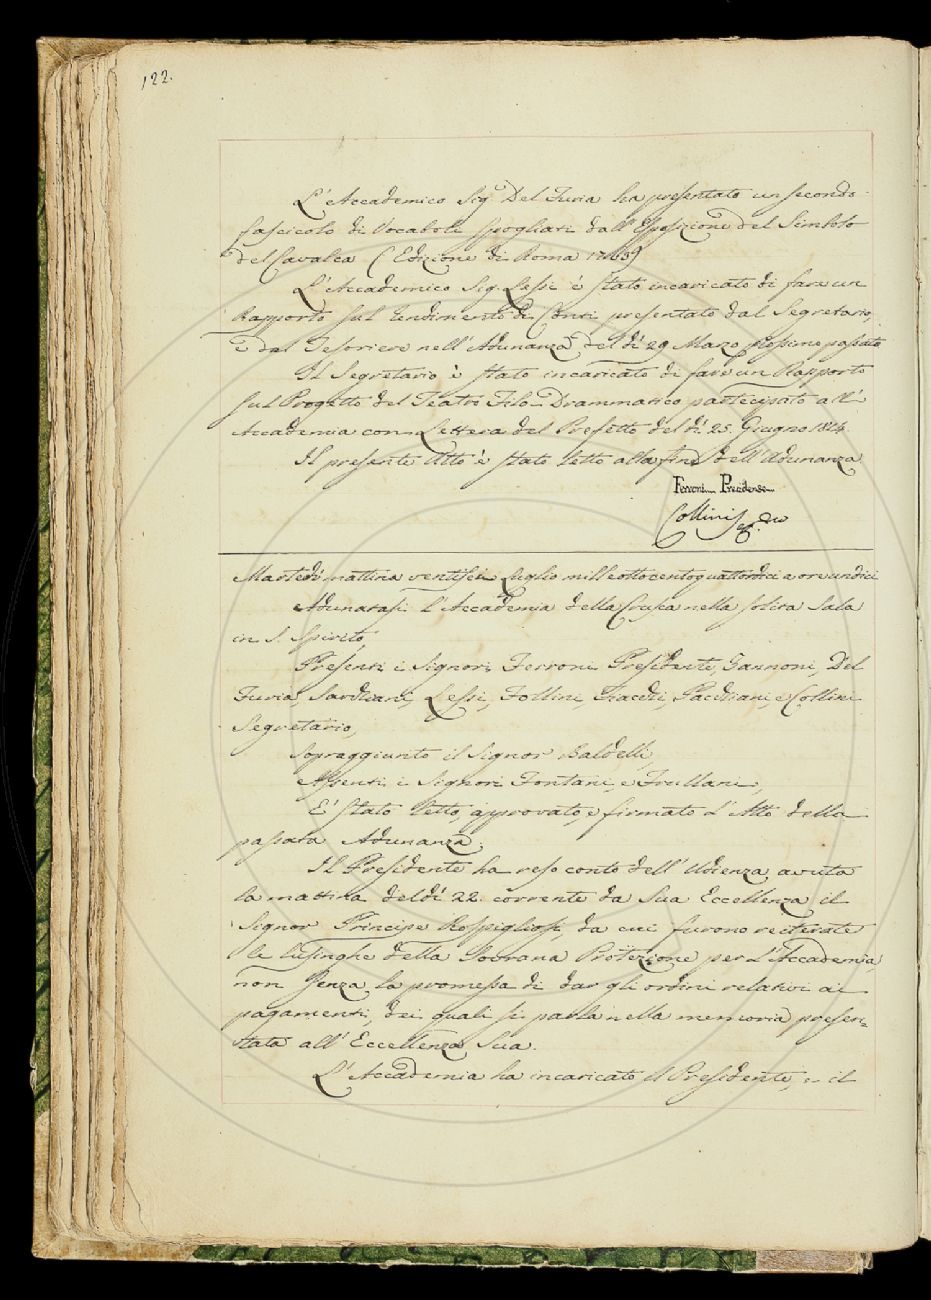 122.
L'Accademico Sig.e Del Furia ha presentato un secondo
fascicolo di Vocaboli spogliati dall'Esposizione del Simbolo
del Cavalca (Edizione di Roma 1763)
L'Accademico Sig. Lessi è stato incaricato di fare un
Rapporto sul Rendimento di Conti presentato dal Segretario,
e dal Tesoriere nell'Adunanza del dì 29 Marzo prossimo passato
Il Segretario è stato incaricato di fare un Rapporto
sul Progetto del Teatro Filo-Drammatico partecipato all'
Accademia con Lettera del Prefetto del dì 25. Giugno 1814.
Il presente Atto è stato letto alla fine dell'Adunanza
Ferroni Presidente
Collini Seg.rio
Martedì mattina ventisei Luglio milleottocentoquattordici a ore undici
Adunatasi l'Accademia della Crusca nella solita Sala
in S. Spirito,
Presenti i Signori Ferroni Presidente, Zannoni, Del
Furia, Sarchiani, Lessi, Follini, Fiacchi, Pacchiani, e Collini
Segretario,
Sopraggiunto il Signor Baldelli,
Assenti i Signori Fontani, e Frullani,
E' stato letto, approvato, e firmato l'Atto della
passata Adunanza.
Il Presidente ha reso conto dell'Udienza avuta
la mattina del dì 22. corrente da Sua Eccellenza il
Signor Principe Rospigliosi, da cui furono reiterate
le lusinghe della Sovrana Protezione per l'Accademia,
non senza la promessa di dar gli ordini relativi ai
pagamenti, dei quali si parla nella memoria presen=
tata all'Eccellenza Sua.
L'Accademia ha incaricato il Presidente, e il